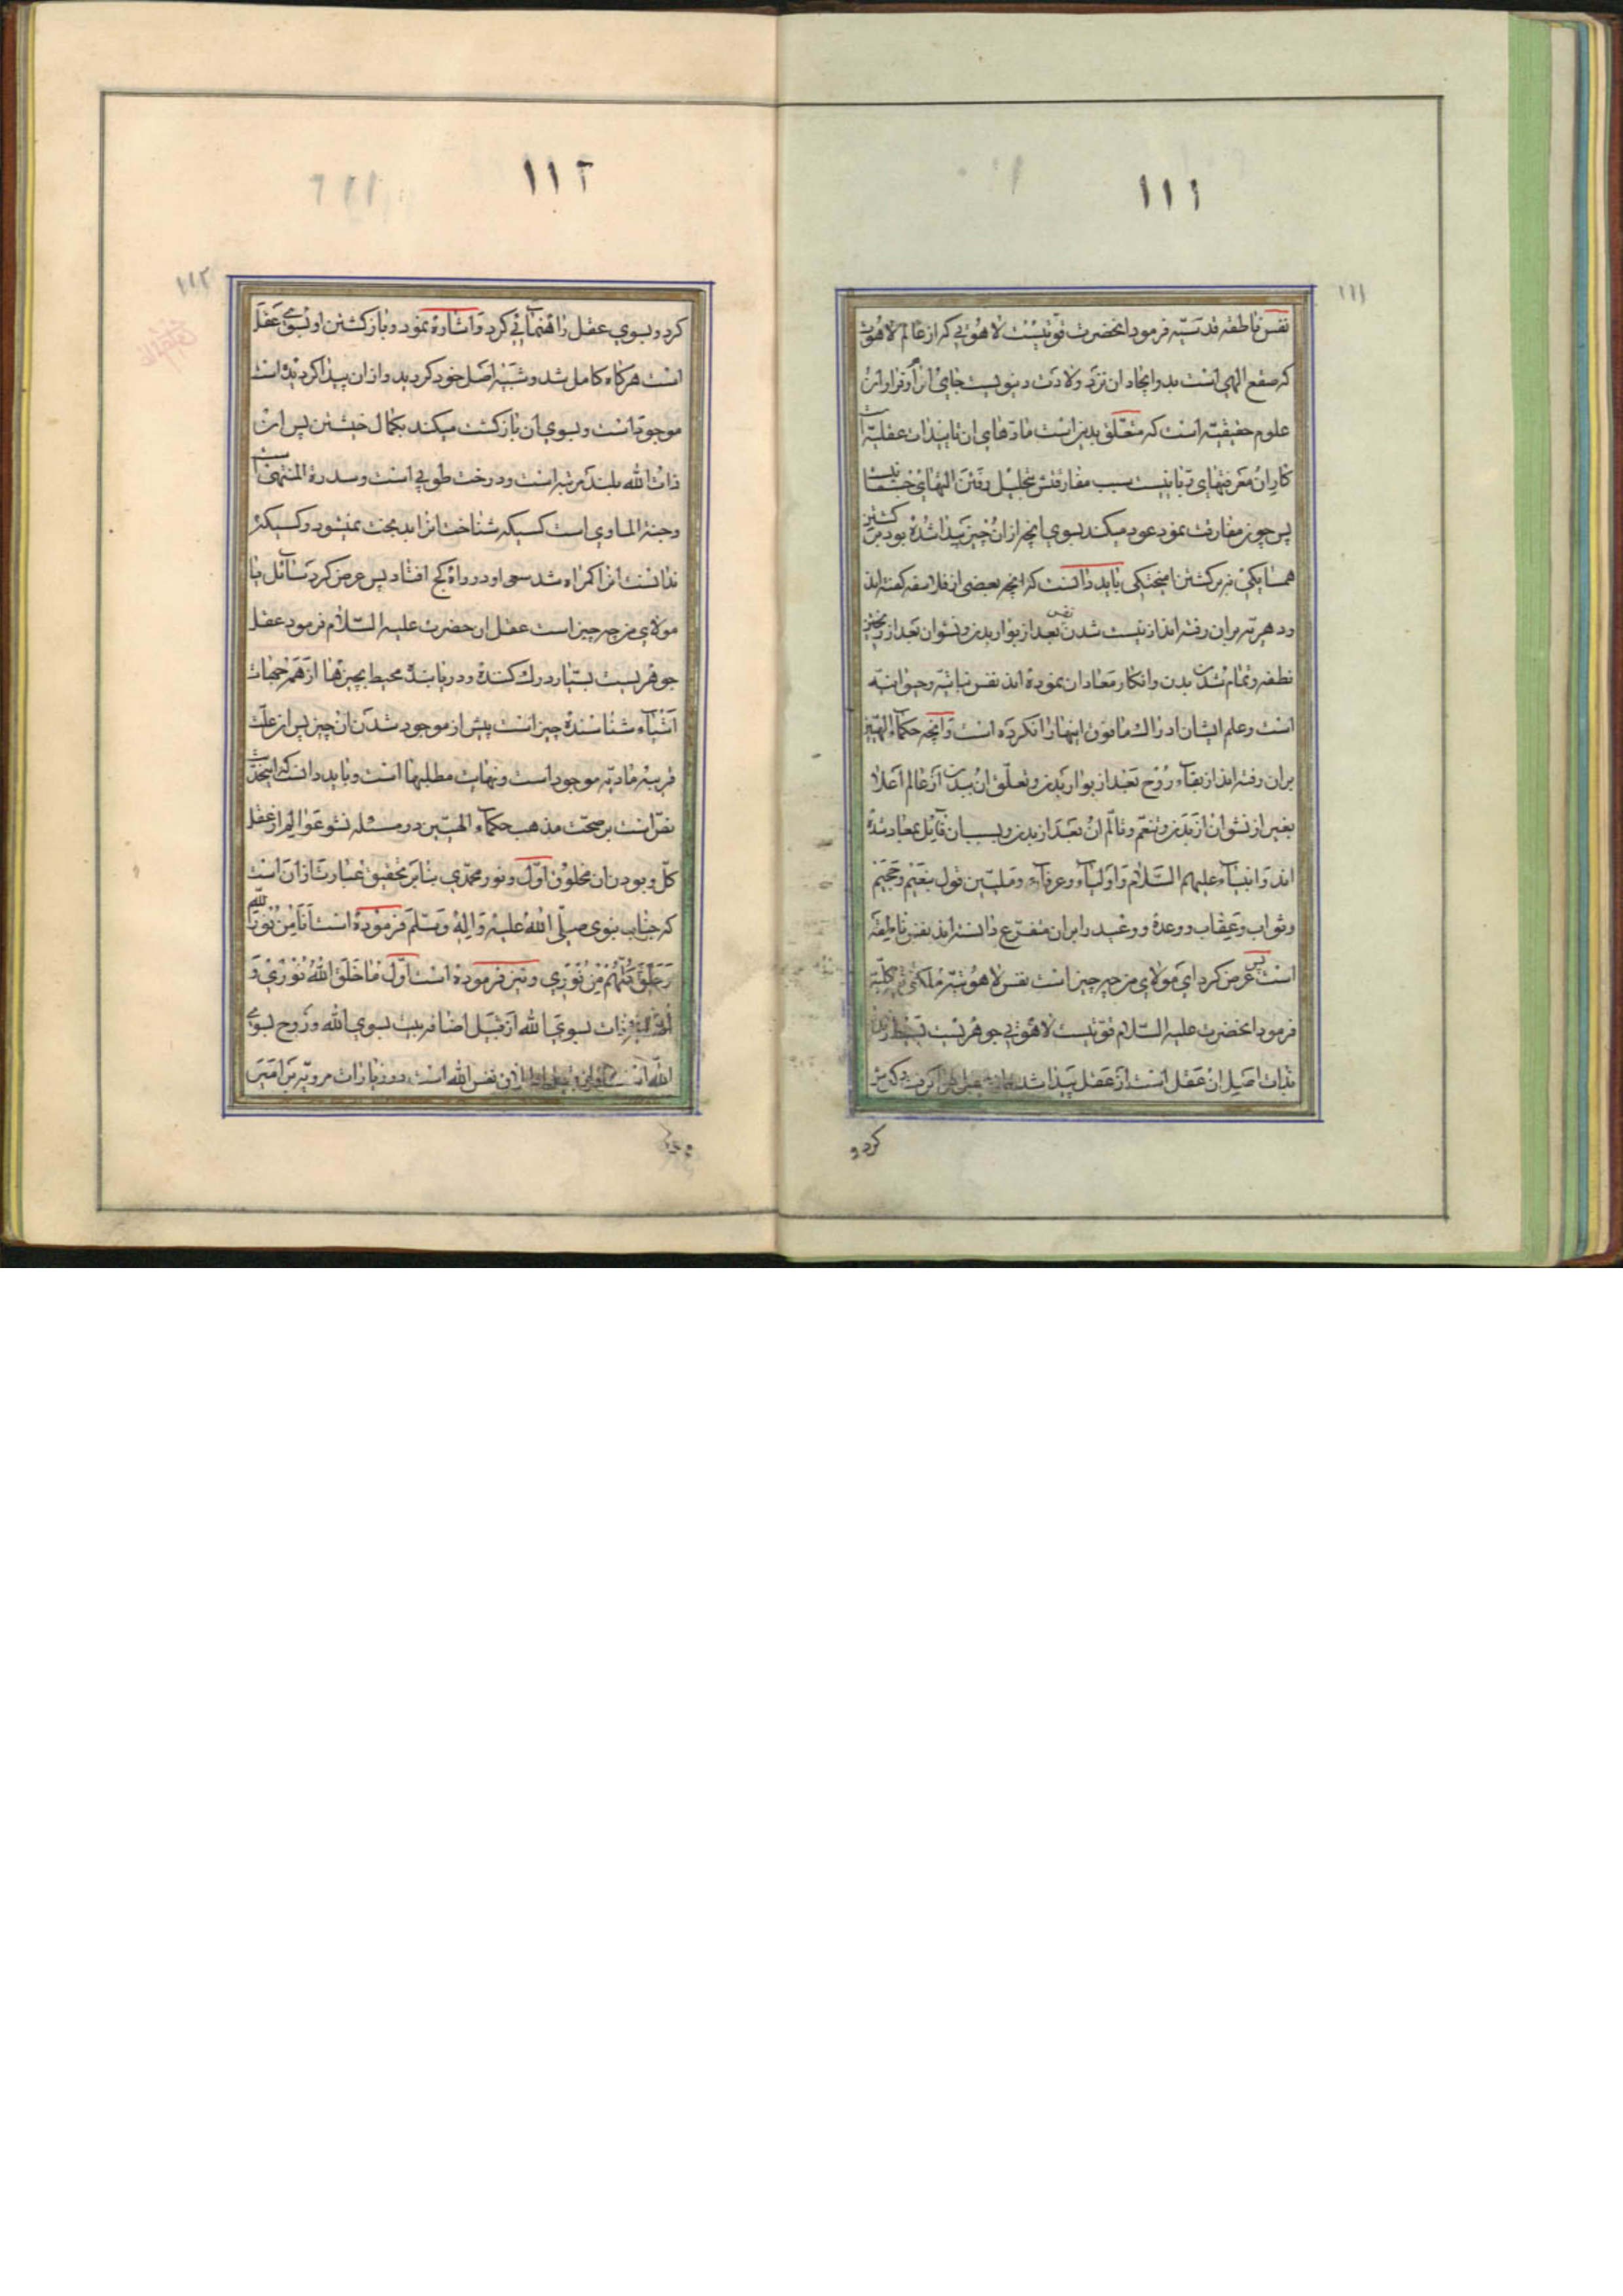 ۱۱۱
۱۱۱
نفس ناطقه قدسیه فرمود انحضرت قوتیست لاهوتی که از عالم لاهوت
که صقع الهی است بدو ایجاد ان نزد ولادت دنیویست جای
علوم حقیقیه است که متعلق بدین است مادهای ان تاییدات عقلیه
کاران معرفتهای ربانیست سبب مفارقتش تحلیل رفتن التهای جسمانیست
پس چون مفارقت نمود عود میکند بسوی انچه از ان چیز پیدا شده بود
همسایکی نه برکشتن امیختکی باید دانست که انچه بعضی از فلاسفه کفته اند
ودهریه بران رفته اند از نیست شدن نفس بعد از بوار بدن ونشوان بعد از
نطفه وتمام شدن بدن وانکار معاد ان نموده اند نفس نباتیه وحیوانیه
است وعلم ایشان ادراک مافوق اینها را نکرده است وانچه حکماء الهیین
بران رفته اند از بقاء روح بعد از بوار بدن وتعلق ان ببدن از عالم اعلا
بغیر از نشو ان از بدن وتنعم وتالم ان بعد از بدن وبسبب ان قایل بمعاد شده
اند وانبیاء علیهم السلام واولیاء وعرفاء وملیین قول بنعیم وجحیم
وثواب وعقاب ووعده ووعید را بران متفرع دانسته اند نفس ناطقه
است پس عرض کرد ای مولای من چه چیز است نفس لاهوتیه ملکوتیه کلیه
فرمود انحضرت علیه السلام قوتیست لاهوتی جوهریست بسیط زنده
بذات اصل ان عقل است از عقل پیدا شد
کرد و
۱۱۲
۱۱۲
کرد وبسوی عقل راهنمائی کرد واشاره نمود وبازکشتن او بسوی عقل
است هرکاه کامل شد وشبیه اصل خود کردید وازان پیدا کردیده است
موجودات وبسوی ان بازکشت میکند بکمال خیشتن پس ان
ذات الله بلند مرتبه است ودرخت طوبی است وسدرة المنتهی است
وجنة الماوی است کسیکه شناخت انرا بدبخت نمیشود وکسیکه
ندانست انرا کمراه شد سعی او ودر راه کج افتاد پس عرض کرد سائل یا
مولای من چه چیز است عقل ان حضرت علیه السلام فرمود عقل
جوهریست بسیار درک کننده ودریابنده محیط بچیزها از همه جهات
اشیاء شناسنده چیز است پیش از موجود شدن ان چیز پس ان علت
قریبه مادیه موجود است ونهایت مطلبها است وباید دانست که این حدیث
نص است بر صحت مذهب حکماء الهیین در مسئله نشو عوالم از عقل
کل وبودن ان مخلوق اول ونور محمدی بنابر تحقیق عبارت از ان است
که جناب نبوی صلی الله علیه واله وسلم فرموده است انا من نور الله
وخلق کلهم من نوری ونیز فرموده است اول ما خلق الله نوری و
ذات بسوی الله از قبیل اضافه بیت بسوی الله وروح بسوی
الله است نفس الله است ودر زیارات مرویه